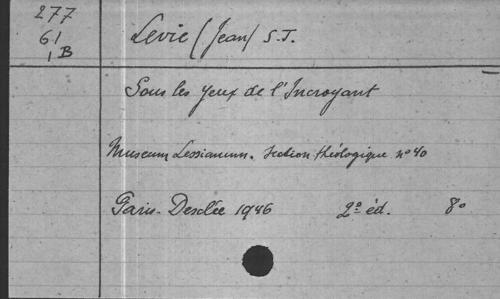 277
61
1B
Levie (Jean) S.J.
Sous les yeux de l'Incroyant
Museum Lessianum. Section théologique nº 40
Paris - Desclée 1946 2º éd. 8º